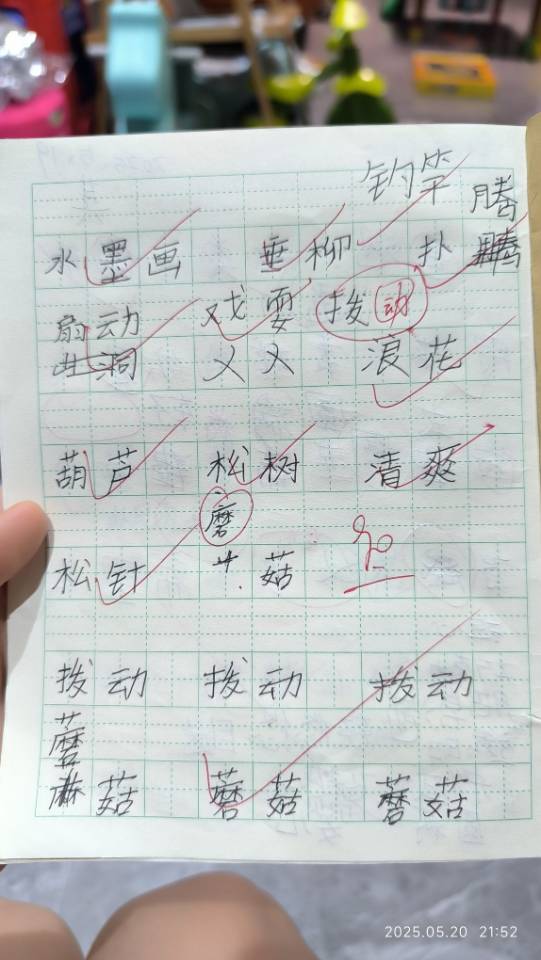 钓竿
水墨画 垂柳 扑腾
扇动 戏耍 拨动
山洞 乂乂 浪花
葫芦 松树 清爽
磨
松针 艹菇 90
拨动 拨动 拨动
蘑
菇 蘑菇 蘑菇
2025.05.20 21:52